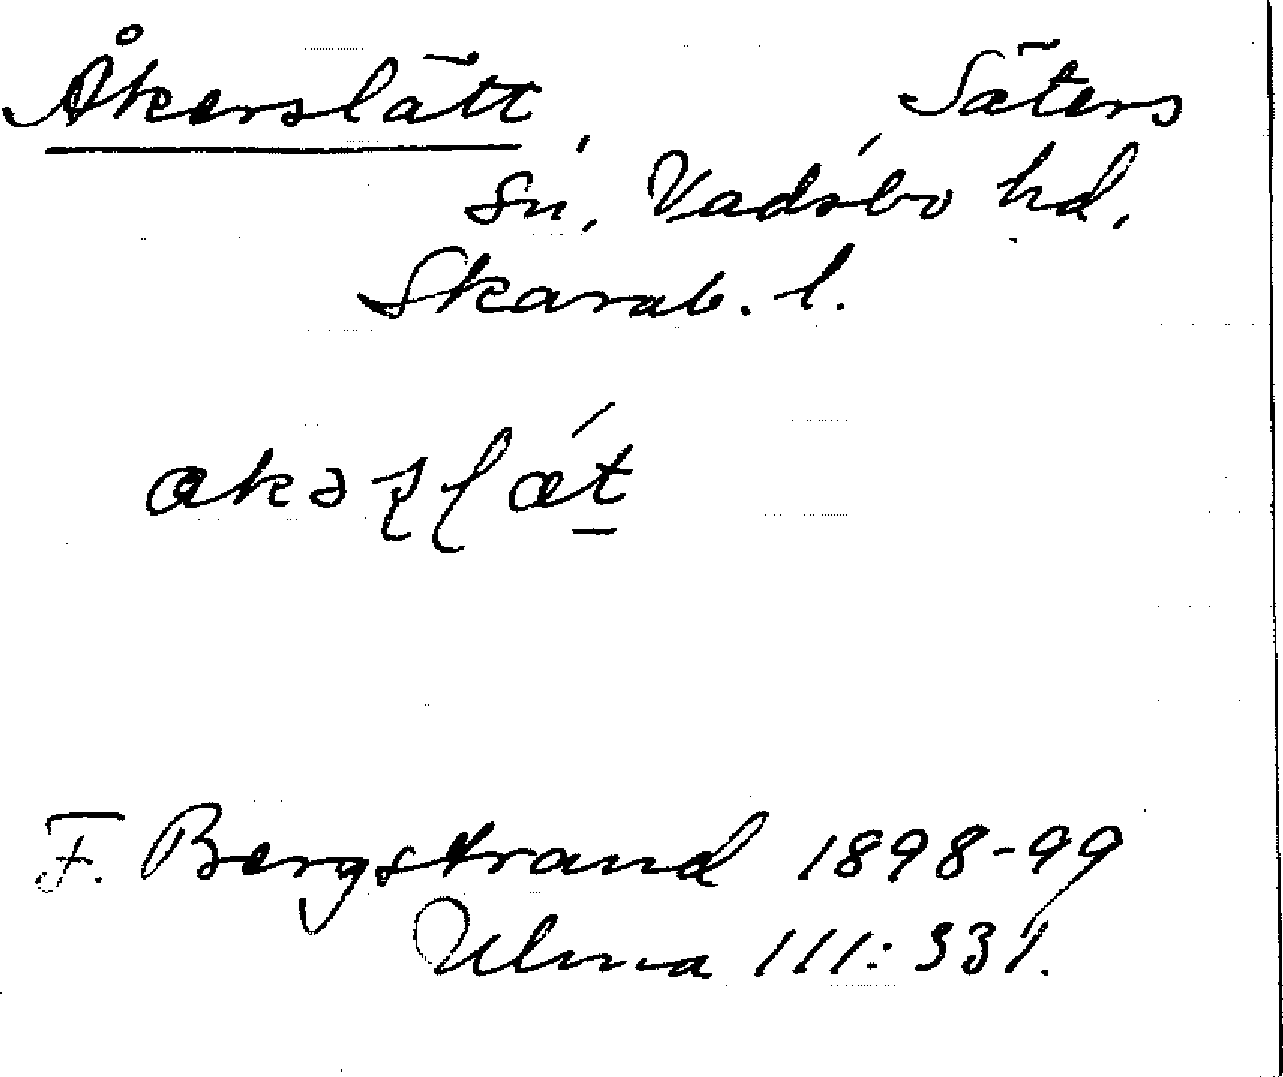 Åkerslätt, Säters
sn, Vadsbo hd,
Skarab. l.
F. Bergstrand 1898-99
Ulma 111:331.